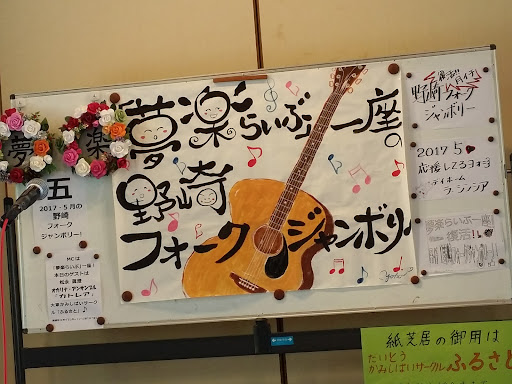 夢楽らいぶ一座の
野崎
フォークジャンボリー
夢
楽
五
2017・5月の
野崎
フォーク
ジャンボリー!
MCは
「夢楽らいぶ一座」
本日のゲストは
オカリナ・アンサンブル
大東かみしばいサークル
「ふるさと」
野崎フォーク
ジャンボリー
2017 5
応援してるヨオヨ
夢楽らいぶ一座
復活!!
紙芝居の御用は
だいとう
かみしばいサークル
ふるさと